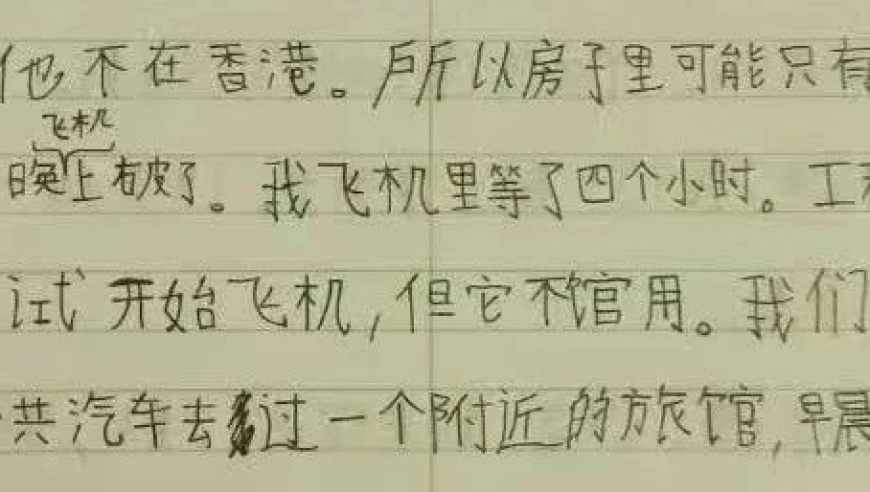 他也不在香港。所以房子里可能只有
飞机
晚上破了。我飞机里等了四个小时。工
试开始飞机,但它不馆用。我们
共汽车去过一个附近的旅馆,早晨